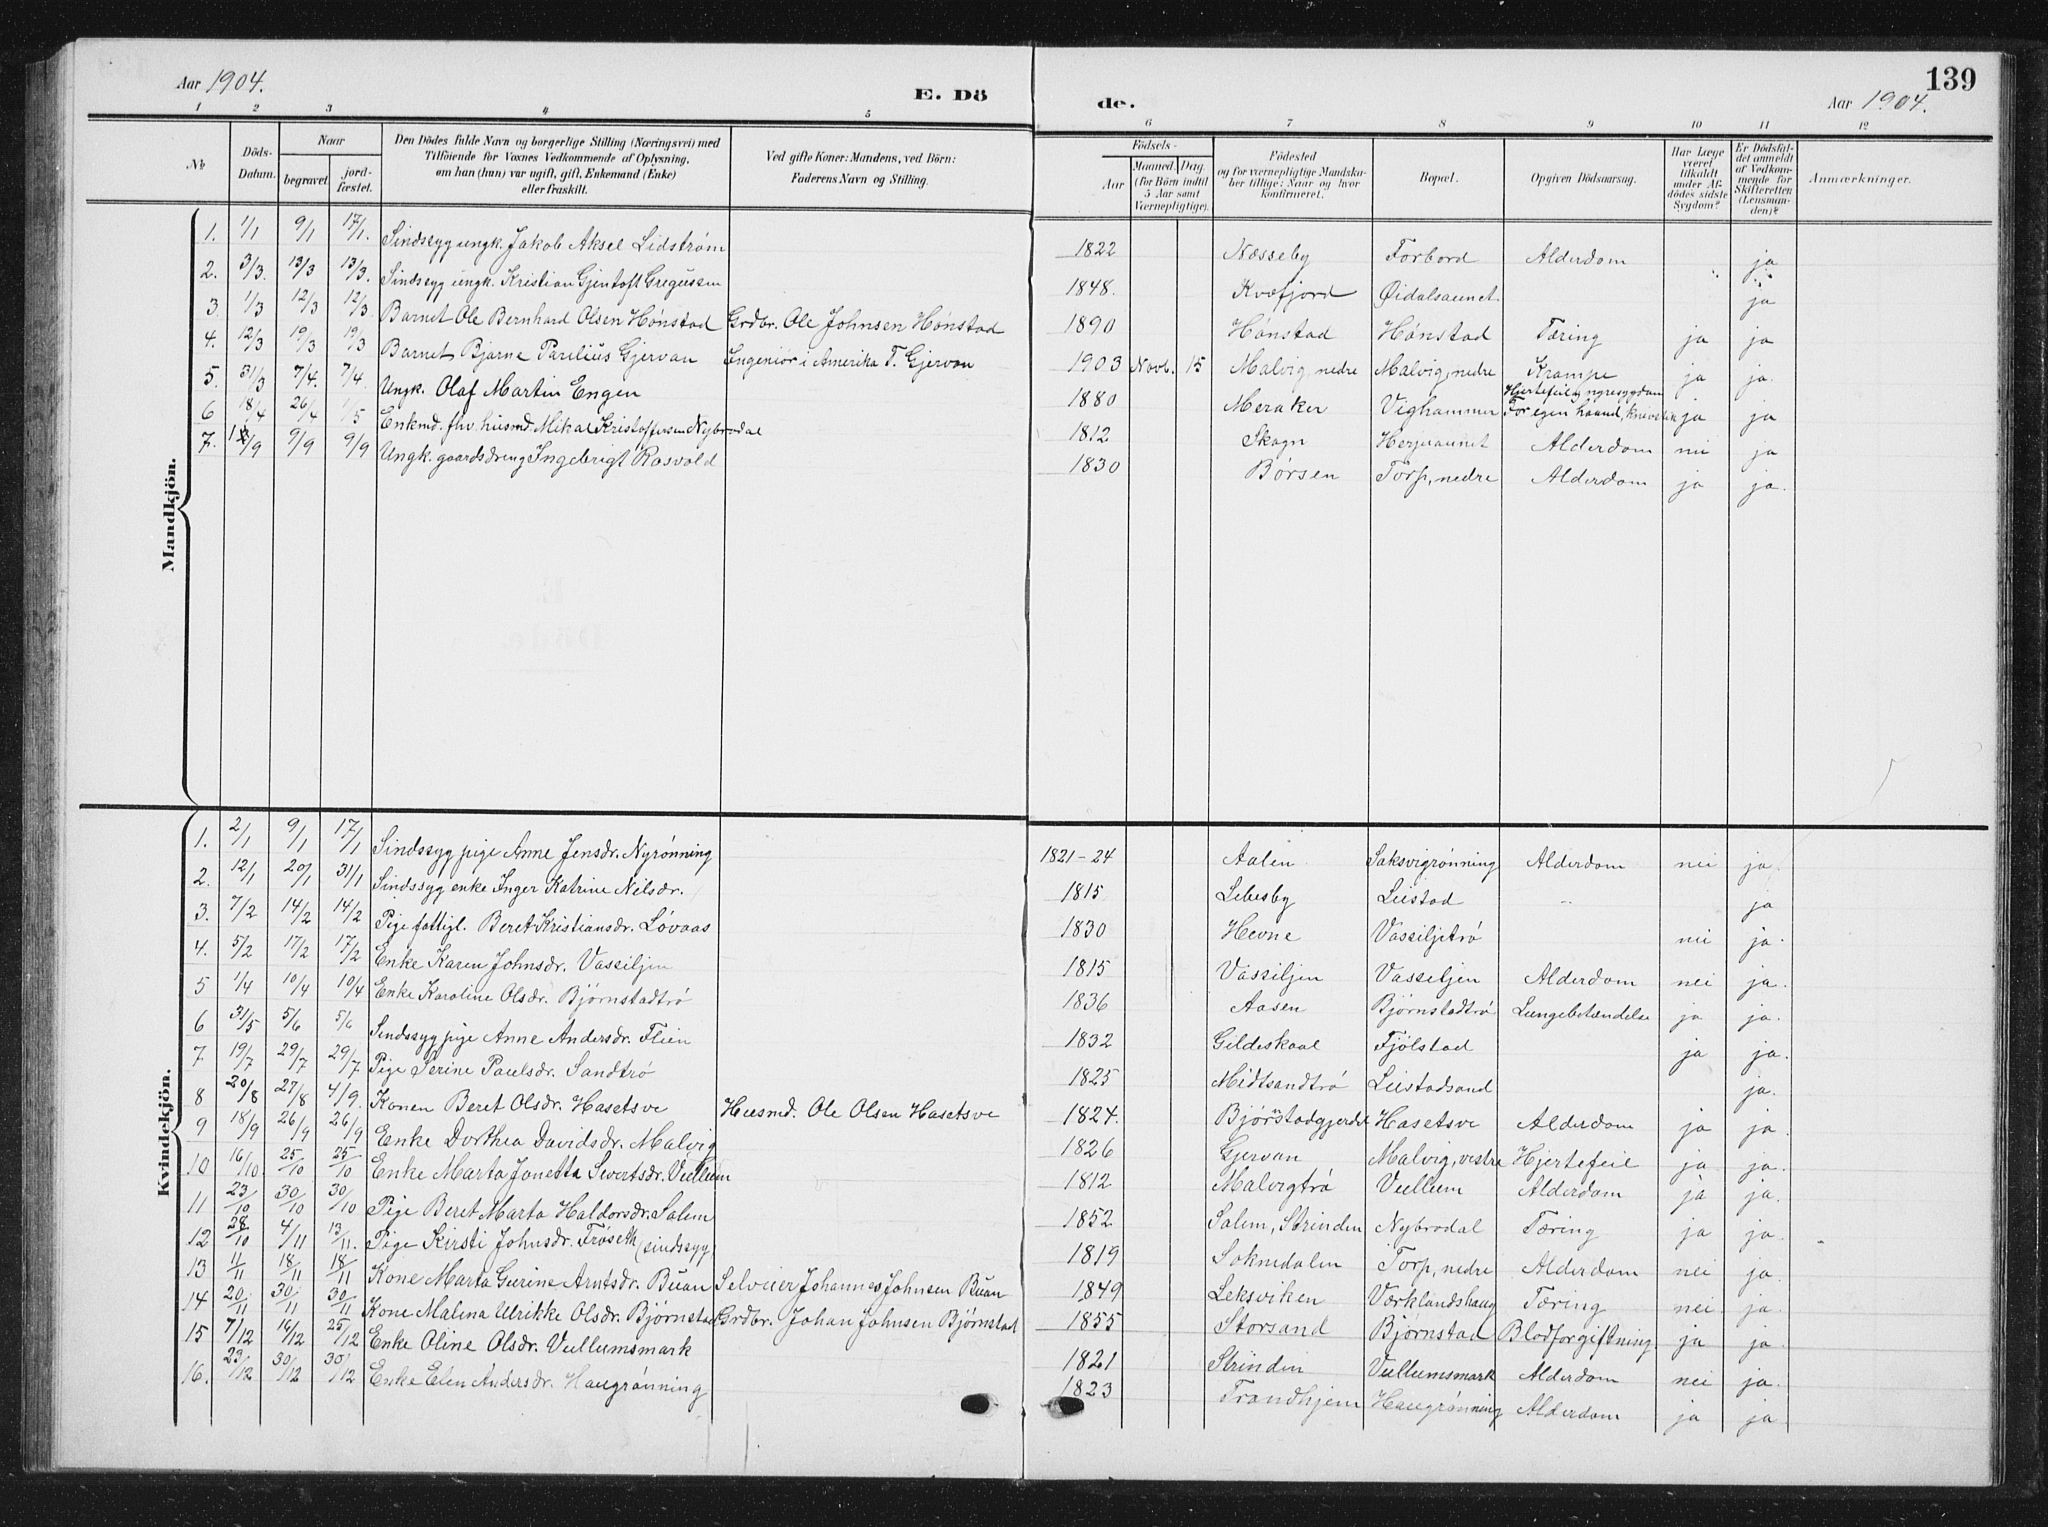 139
Aar 1904. E. Dö de. Aar 1904.
1 2 3 4 5 6 7 8 9 10 11 12
№ Döds-Datum. Naar begravet. jord-fæstet. Den Dödes fulde Navn og borgerlige Stilling (Næringsvei) med Tilföiende for Voxnes Vedkommende af Oplysning, om han (hun) var ugift, gift, Enkemand (Enke) eller fraskilt. Ved gifte Koner: Mandens, ved Börn: Faderens Navn og Stilling. Födsels- Aar Maaned. Dag. (for Börn indtil 5 Aar samt Værnepligtige). Födested og for værnepligtige Mandskaber tillige: Naar og hvor konfirmeret. Bopæl. Opgiven Dödsaarsag. Har Læge været tilkaldt under Afdödes sidste Sygdom? Er Dödsfaldet anmeldt af Vedkommende for Skifteretten (Lensmanden)? Anmærkninger.
Mandkjön.
1. 1/1 9/1 17/1. Sindssyg ungk. Jakob Aksel Lidstrøm 1822 Næsseby Forbord Alderdom " ja
2. 3/3. 13/3 13/3. Sindssyg ungk. Kristian Gjentoft Gregussen 1848. Kvæfjord Øidalsaunet ja
3 1/3 12/3 12/3 Barnet Ole Bernhard Olsen Hønstad Grdbr. Ole Johnsen Hønstad 1890 Hønstad Hønstad Tæring ja ja
4. 12/3 19/3 19/3 Barnet Bjarne Parelius Gjervan Ingeniør i Amerika T. Gjervan 1903 Novb. 15 Malvig, nedre Malvig, nedre Krampe ja ja.
5. 31/3 7/4. 7/4. Ungk. Olaf Martin Engen 1880 Meraker Vighammer Hjertefeil ja ja
6 18/4 26/4 1/5 Enkmd. fhv. husmd. Mikal Kristoffersen Nybrodal 1812 Skogn Herjuaunet Alderdom nei ja
7. 9/9 9/9 Ungk. gaardsdreng Ingebrigt Rosvold 1830 Børsen Torp, nedre Alderdom ja ja.
Kvindekjön.
1. 2/1 9/1 17/1 Sindssyg pige Anne Jensdr. Nyrønning 1821-24 Aalen Saksvigrønning Alderdom nei ja.
2. 12/1 20/1 31/1 Sindssyg enke Inger Katrine Nilsdr. 1815 Lebesby Leistad " ja
3. 7/2 14/2 14/2 Pige fattigl. Beret Kristiansdr. Løvaas 1830 Hevne Vassiljetrø nei ja.
4. 5/2 17/2 17/2 Enke Karen Johnsdr. Vassiljen 1815 Vassiljen Vassiljen Alderdom nei ja.
5 1/4 10/4 10/4 Enke Karoline Olsdr. Bjørnstadtrø 1836 Aasen Bjørnstadtrø Lungebetændelse ja ja.
6 31/5 5/6 5/6 Sindssyg pige Anne Andersdr. Flien 1832 Gildeskaal Fjølstad ja ja.
7 19/7 29/7 29/7 Pige Serine Paulsdr. Sandtrø 1825 Midtsandtrø Leistadsand ja.
8 20/8 27/8 4/9. Konen Beret Olsdr. Hasetsve Husmd. Ole Olsen Hasetsve 1824. Bjørstadgjerdet Hasetsve Alderdom ja ja
9 18/9 26/9 26/9 Enke Dorthea Davidsdr. Malvig 1826 Gjervan Malvig, vestre Hjertefeil ja ja.
10 16/10 25/10 25/10 Enke Marta Jonetta Sivertsdr. Vullum 1812 Malvigtrø Vullum Alderdom ja ja.
11 23/10 30/10 30/10 Pige Beret Marta Haldorsdr. Salem 1852 Salem, Strinden Nybrodal Tæring ja ja.
12 28/10 4/11 13/11. Pige Kirsti Johnsdr. Frøseth (sindssyg) 1819 Soknedalen Torp, nedre Alderdom nei ja.
13 11/11 18/11 18/11 Kone Marta Gurine Arntsdr. Buan Selveier Johannes Johnsen Buan 1849 Leksviken Værklandshaug Tæring nei ja.
14 20/11 30/11 30/11 Kone Malena Ulrikke Olsdr. Bjørnstad Grdbr. Johan Johnsen Bjørnstad 1855 Storsand Bjørnstad Blodforgiftning ja ja.
15 7/12 16/12 25/12 Enke Oline Olsdr. Vullumsmark 1821 Strinden Vullumsmark Alderdom nei ja.
16. 23/12 30/12 30/12 Enke Elen Andersdr. Haugrønning 1823 Trondhjem Haugrønning Alderdom ja ja